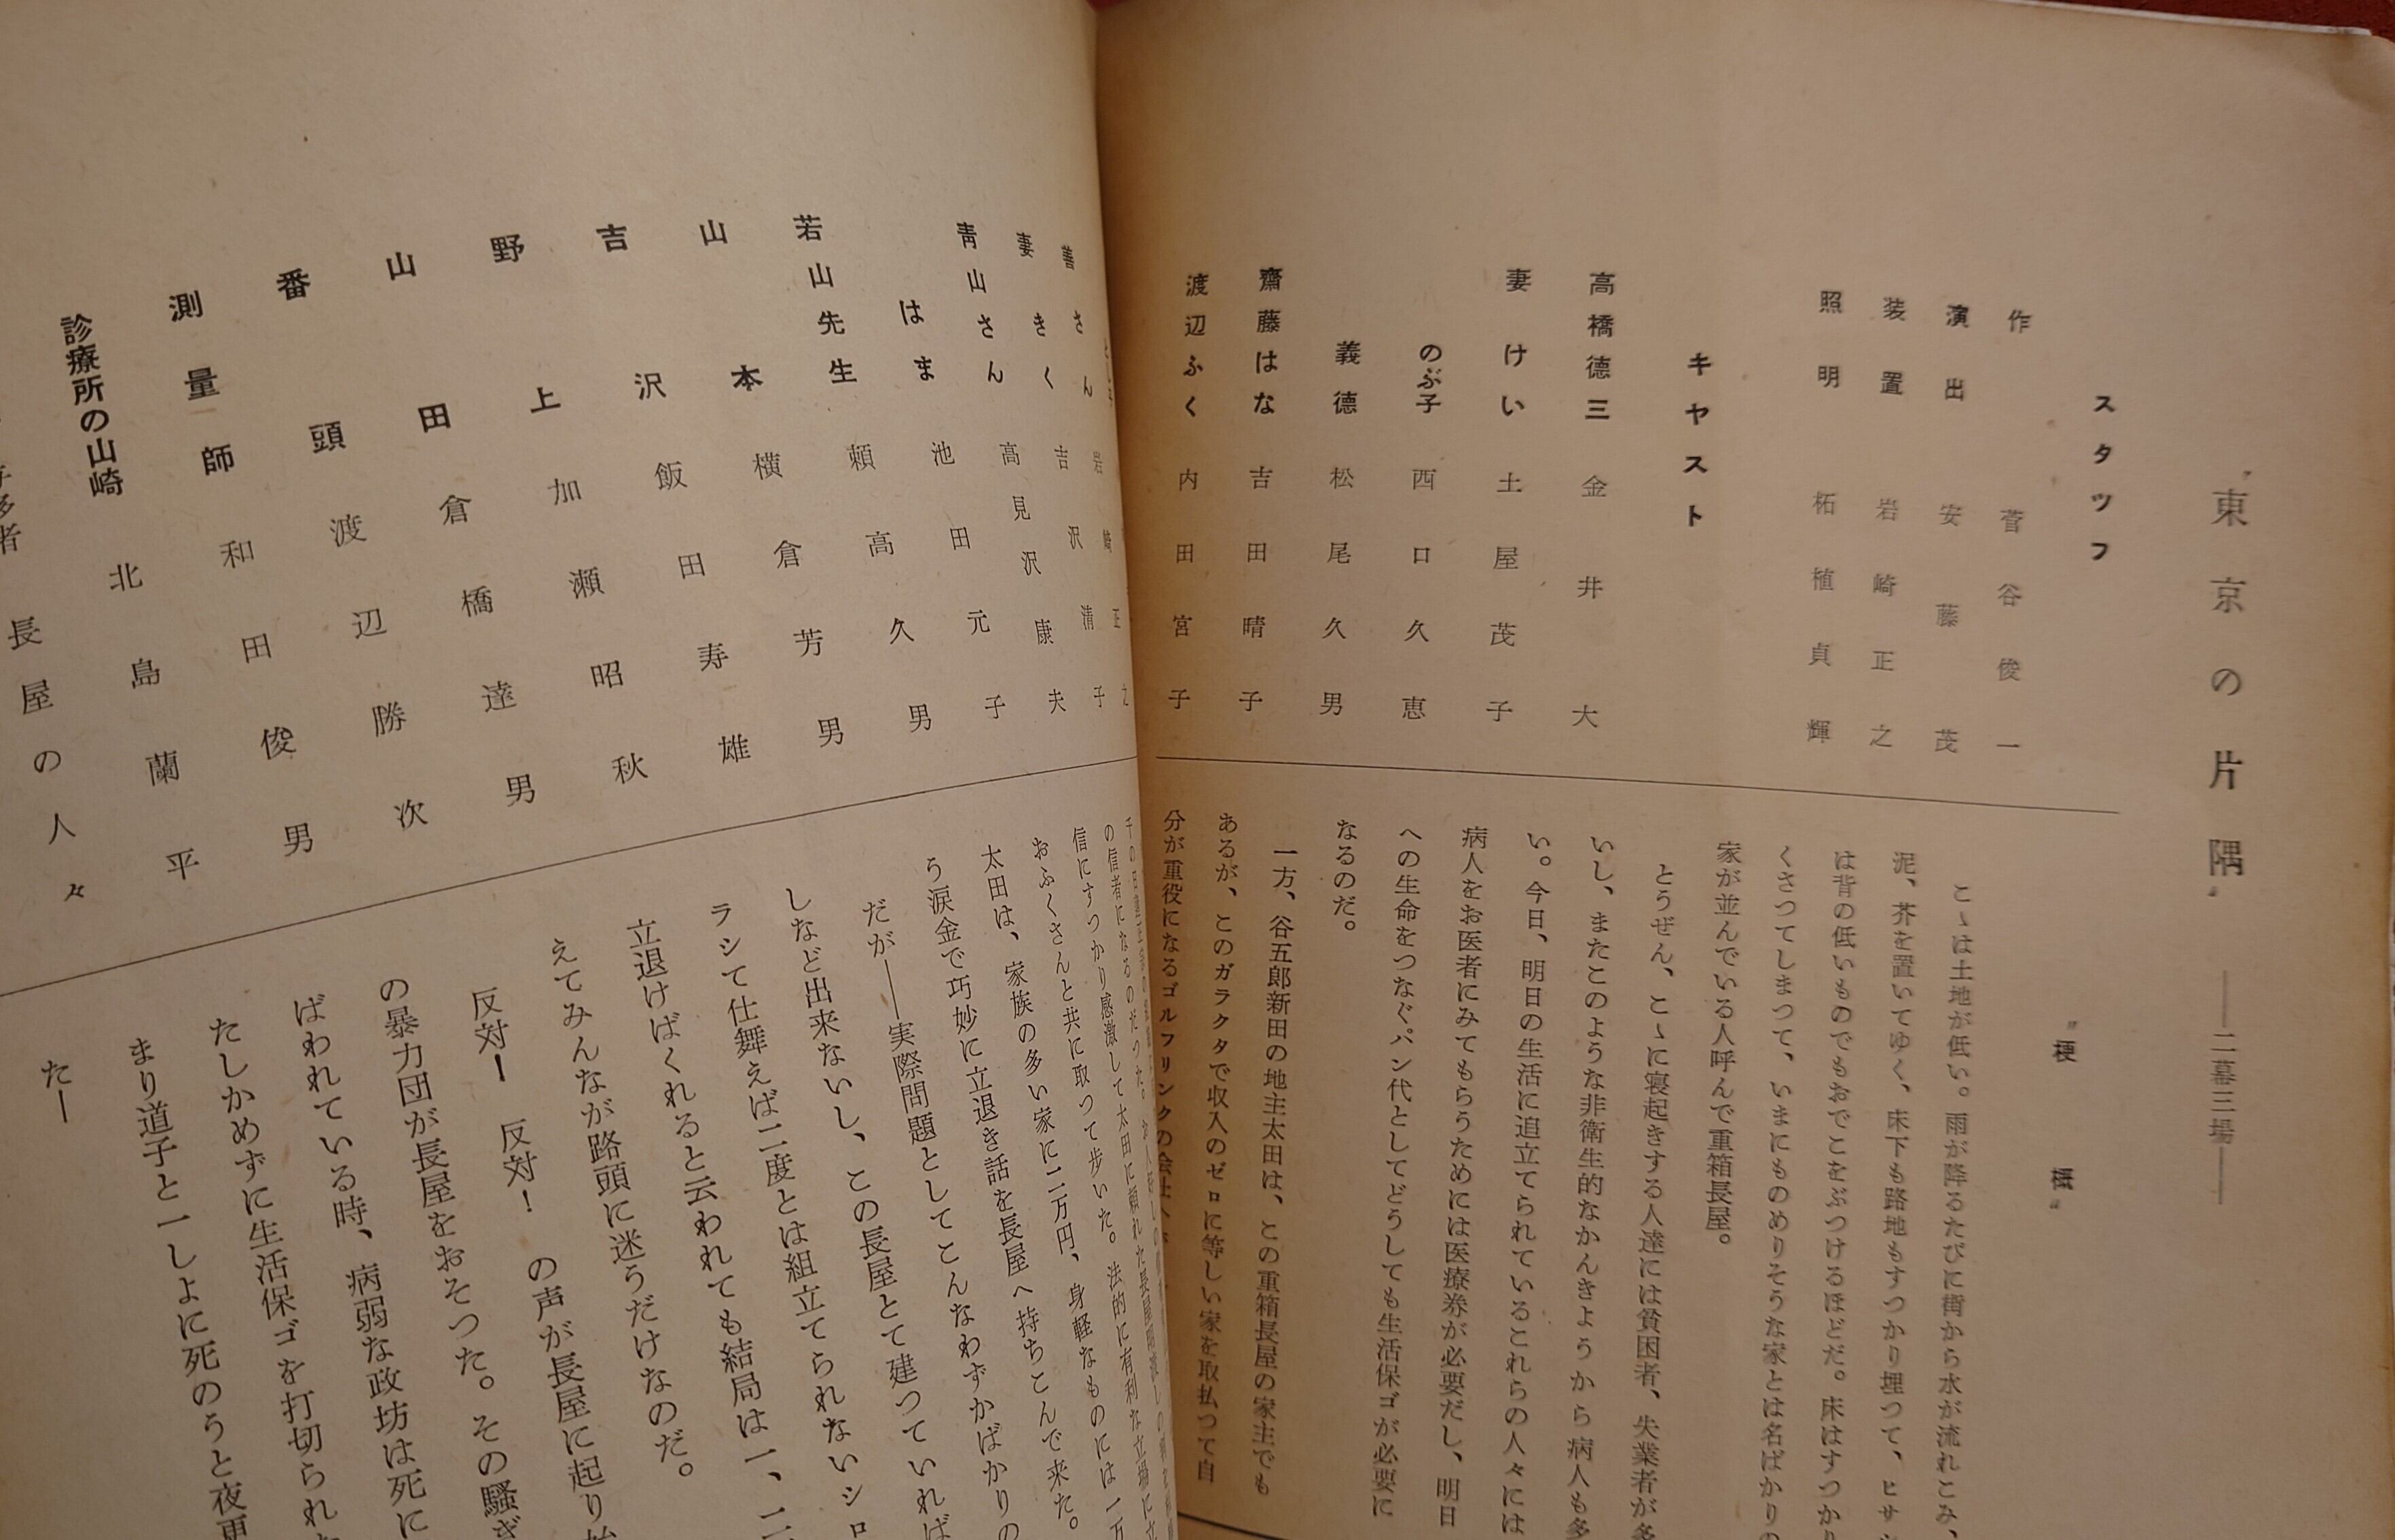 〝東京の片隅〟――二幕三場――
スタッフ
作 菅谷俊一
演出 安藤茂
装置 岩崎正之
照明 柘植貞輝
キャスト
高橋徳三 金井大
妻けい 土屋茂子
のぶ子 西口久恵
義徳 松尾久男
齋藤はな 吉田晴子
渡辺ふく 内田宮子
〝梗概〟
こゝは土地が低い。雨が降るたびに街から水が流れこみ、
泥、芥を置いてゆく、床下も路地もすつかり埋つて、ヒサシ
は背の低いものでもおでこをぶつけるほどだ。床はすつかり
くさつてしまつて、いまにものめりそうな家とは名ばかりの
家が並んでいる人呼んで重箱長屋。
とうぜん、こゝに寝起きする人達には貧困者、失業者が多
いし、またこのような非衛生的なかんきようから病人も多
い。今日、明日の生活に追立てられているこれらの人々には
病人をお医者にみてもらうためには医療券が必要だし、明日
への生命をつなぐパン代としてどうしても生活保ゴが必要に
なるのだ。
一方、谷五郎新田の地主太田は、この重箱長屋の家主でも
あるが、このガラクタで収入のゼロに等しい家を取払つて自
分が重役になるゴルフリンクの会社へ
善さん 岩崎正之
妻きく 吉沢清子
青山さん 高見沢康夫
はま 池田元子
若山先生 頼高久男
山本 横倉芳男
吉沢 飯田寿雄
野上 加瀬昭秋
山田 倉橋達男
番頭 渡辺勝次
測量師 和田俊男
診療所の山崎 北島蘭平
長屋の人々
の信者になるのだつた。
信にすつかり感激して太田に頼れた長屋
おふくさんと共に取つて歩いた。法的に有利な立場に立
太田は、家族の多い家に二万円、身軽なものには一万
う涙金で巧妙に立退き話を長屋へ持ちこんで来た。
だが――実際問題としてこんなわずかばかりの
しなど出来ないし、この長屋とて建つていれば
ラシて仕舞えば二度とは組立てられないシロ
立退けばくれると云われても結局は一、二
えてみんなが路頭に迷うだけなのだ。
反対ー 反対！ の声が長屋に起り
の暴力団が長屋をおそつた。その騒ぎ
ばわれている時、病弱な政坊は死に
たしかめずに生活保ゴを打切られ
まり道子と一しよに死のうと夜更
たー